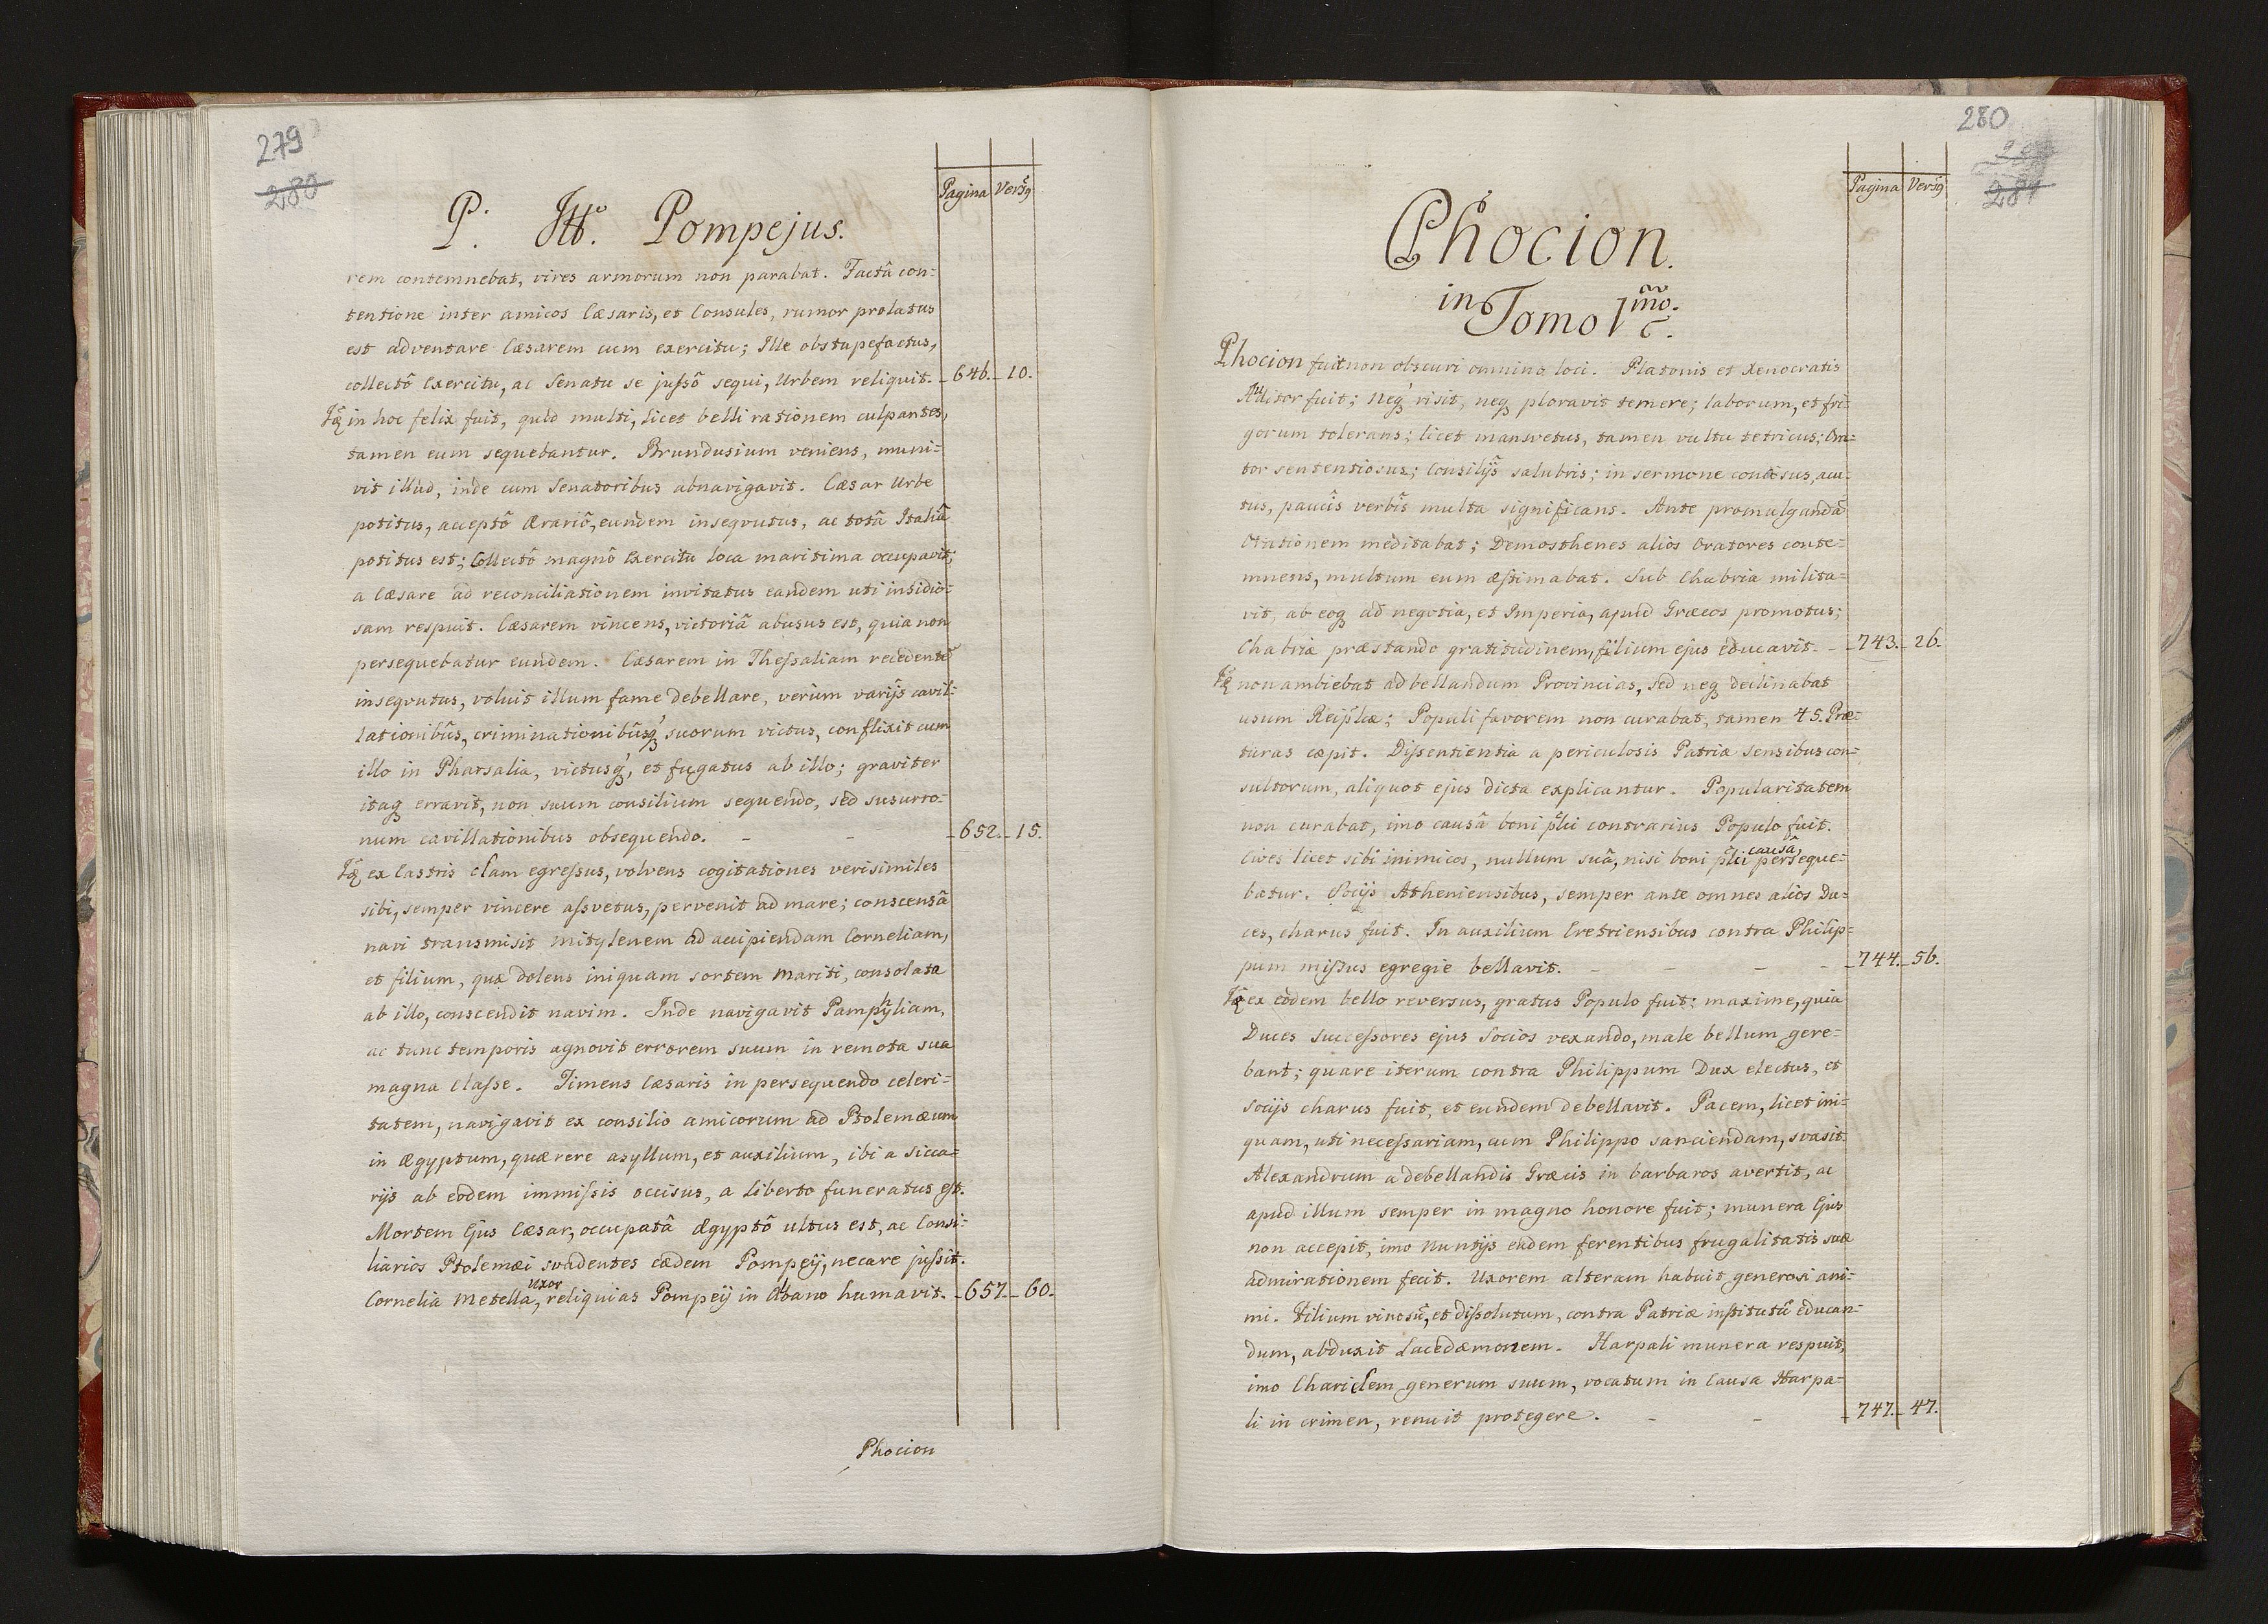 279
280
Pagina Versq
P. Itt. Pompejus.
rem contemnebat, vires armorum non parabat. Factâ con=
tentione inter amicos Cæsaris, et Consules, rumor prolatus
est adventare Cæsarem cum exercitu; Ille obstupefactus,
collectô Exercitu, ac Senatu se jussô sequi, Urbem reliquit. 646. 10.
in hoc felix fuit, quod multi, licet belli rationem culpantes,
tamen eum sequebantur. Brundusium veniens, muni=
vit illud, inde cum Senatoribus abnavigavit. Cæsar Urbe
potitus, acceptô Ærariô, eundem inseqvutus, ac totâ Italiâ
potitus est; Collectô magnô Exercitu loca maritima occupavit;
a Cæsare ad reconciliationem invitatus eandem uti insidio=
sam respuit. Cæsarem vincens, victoriâ abusus est, quia non
persequebatur eundem. Cæsarem in Thessaliam recedentẽ
inseqvutus, voluit illum fame debellare, verùm varijs cavil=
lationibûs, criminationibûsq́ suorum victus, conflixit cum
illo in Pharsalia, victusq́, et fugatus ab illo; graviter
itaq erravit, non suum consilium sequendo, sed susurro=
num cavillationibus obsequendo. - - 652. 15.
ex Castris clam egressus, volvens cogitationes verisimiles
sibi, semper vincere assvetus, pervenit ad mare; conscensâ
navi transmisit Mitylenem ad accipiendam Corneliam,
et filium, quæ dolens iniquam sortem Mariti, consolata
ab illo, conscendit navim. Inde navigavit Pamphyliam,
ac tunc temporis agnovit errorem suum in remota sua
magna Classe. Timens Cæsaris in persequendo celeri=
tatem, navigavit ex consilio amicorum ad Ptolemæum
in Ægyptum, quærere asyllum, et auxilium, ibi a sicca=
rijs ab eodem immissis occisus, a Liberto funeratus est.
Mortem Ejus Cæsar, occupatâ Ægyptô ultus est, ac Consi=
liarios Ptolemæi svadentes cædem Pompeij, necare jussit.
Cornelia Metella, uxor reliquias Pompeij in Albano humavit. 657. 60.
Phocion
280
281
Pagina Versq
Phocion.
in Tomo 1mo.
Phocion fuit non obscuri omnino loci. Platonis et Xenocratis
Auditor fuit; Neq́ risit, neq ploravit temere; laborum, et fri=
gorum tolerans; licet mansvetus, tamen vultu tetricus; Ora=
tor sententiosus; Consilijs salubris; in sermone concisus, acu=
tus, paucis verbis multa significans. Ante promulgandã
Orationem meditabat; Demosthenes alios Oratores conte=
mnens, multum eum æstimabat. Sub Chabria milita=
vit, ab eoq ad negotia, et Imperia, apud Græcos promotus;
Chabriæ præstando gratitudinem, filium ejus educavit. - 743. 26.
non ambiebat ad bellandum Provincias, sed neq declinabat
usum Reipl̃cæ; Populi favorem non curabat, tamen 45. Præ=
turas cæpit. Dissentientia a periculosis Patriæ sensibus con=
sultorum, aliquot ejus dicta explicantur. Popularitatem
non curabat, imo causâ boni pl̃ci contrarius Populo fuit.
Cives licet sibi inimicos, nullum suâ, nisi boni pl̃ci causâ, perseque=
batur. Socijs Atheniensibus, semper ante omnes alios Du=
ces, charus fuit. In auxilium Eretriensibus contra Philip=
pum missus egregie bellavit. - - - - 744. 56.
ex eodem bello reversus, gratus Populo fuit; maxime, quia
Duces successores ejus Socios vexando, male bellum gere=
bant; quare iterum contra Philippum Dux electus, et
socijs charus fuit, et eundem debellavit. Pacem, licet ini=
quam, uti necessariam, cum Philippo sanciendam, svasit.
Alexandrum a debellandis Græcis in barbaros avertit, ac
apud illum semper in magno honore fuit; munera Ejus
non accepit, imo Nuntijs eadem ferentibus frugalitatis suæ
admirationem fecit. Uxorem alteram habuit generosi ani=
mi. Filium vinosũ, et dissolutum, contra Patriæ institutũ educan=
dum, abduxit Lacedæmonem. Harpali munera respuit,
imo Chariclem generum suum, vocatum in Causa Harpa=
li in crimen, renuit protegere. - - 747. 47.